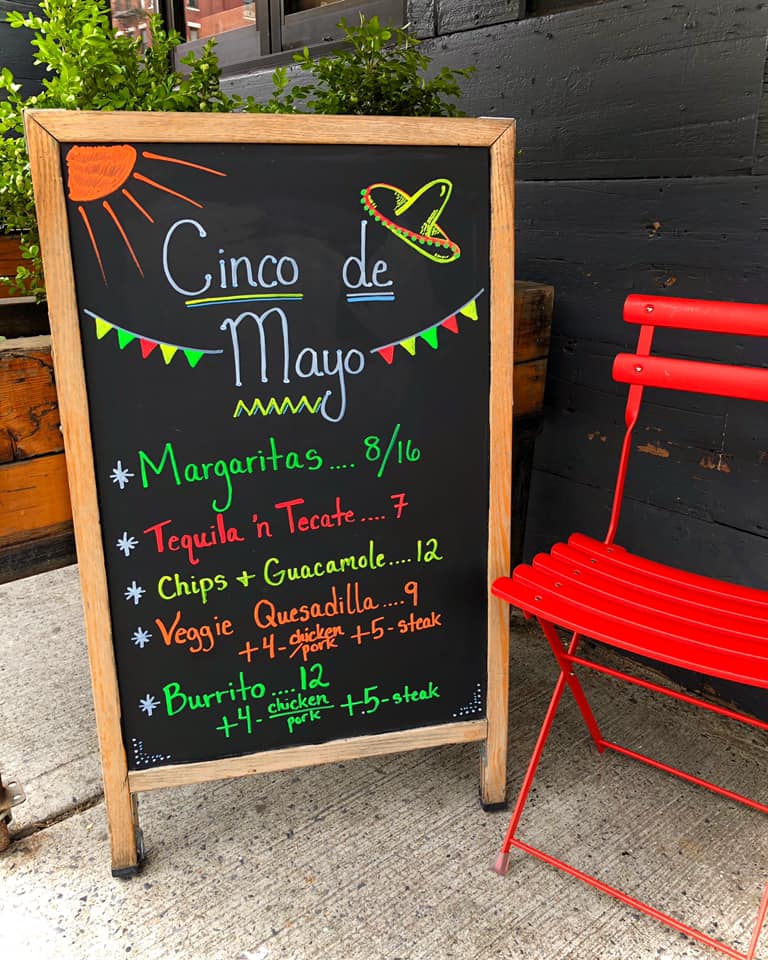 Cinco de
Mayo
* Margaritas.... 8/16
* Tequila 'n Tecate.... 7
* Chips + Guacamole.... 12
* Veggie Quesadilla....9
+4- chicken/pork +5- steak
* Burrito....12
+4- chicken/pork +5- steak